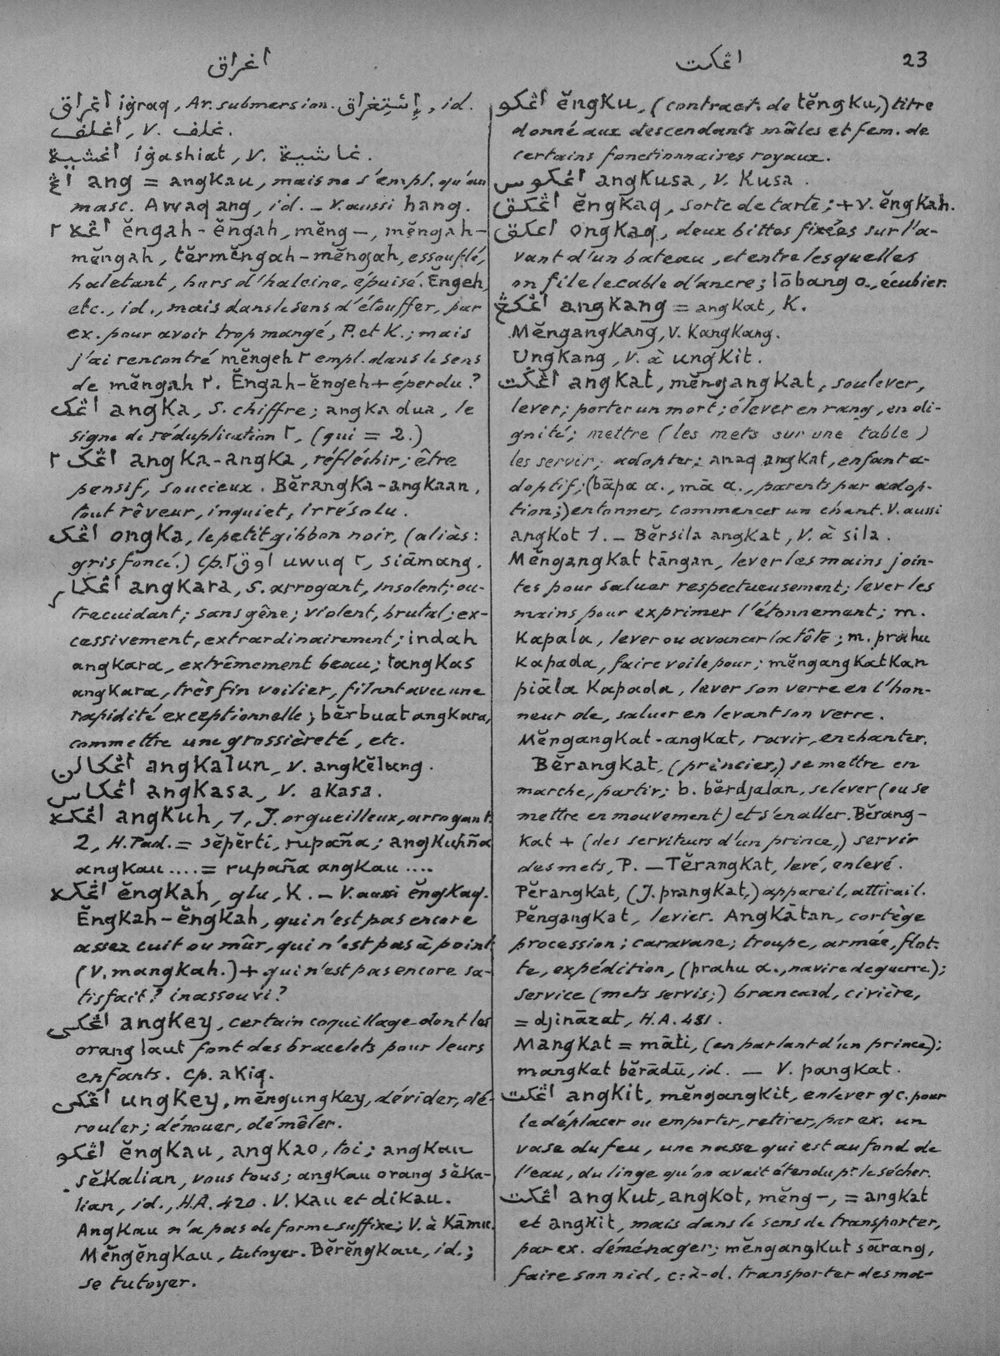 اغراق
اڠكت 23
اغراق iġraq, Ar. submersion. إستغراق, id.
أغلف, V. غلف.
اغشية iġashiat, V. غاشية.
اڠ ang = angkau, mais ne s'empl. qu'au
masc. Awaq ang, id. – V. aussi hang.
اڠه ٢ ĕngah-ĕngah, mĕng–, mĕngah-
mĕngah, tĕrmĕngah-mĕngah, essouflé,
haletant, hors d'haleine, épuisé. Engeh,
etc., id., mais dans le sens d'étouffer, par
ex. pour avoir trop mangé, P. et K.; mais
j'ai rencontré mĕngeh ٢ empl. dans le sens
de mĕngah ٢. Ĕngah-ĕngeh + éperdu?
اڠك angka, S. chiffre; angka dua, le
signe de réduplication ٢, (qui = 2.)
اڠك ٢ angka-angka, réfléchir; être
pensif, soucieux. Bĕrangka-angkaan,
tout rêveur, inquiet, irrésolu.
اڠك ongka, le petit gibbon noir, (aliàs:
gris foncé.) Cp. اووق ٢ uwuq ٢, siāmang.
اڠكار angkara, S. arrogant, insolent; ou-
trecuidant; sans gêne; violent, brutal; ex-
cessivement, extrardinairement; indah
angkara, extrêmement beau; tangkas
angkara, très fin voilier, filant avec une
rapidité exceptionnelle; bĕrbuat angkara,
commettre une grossièreté, etc.
اڠكالن angkalun, V. angkĕlung.
اڠكاس angkasa, V. akasa.
اڠكه angkuh, 1, J. orgueilleux, arrogant.
2, H. Pad. = sĕpĕrti, rupaña; angkuhña
angkau .... = rupaña angkau ....
اڠكه ĕngkah, glu, K. – V. aussi ĕngkaq.
Ĕngkah-ĕngkah, qui n'est pas encore
assez cuit ou mûr, qui n'est pas à point
(V. mangkah.) + qui n'est pas encore sa-
tisfait? inassouvi?
اڠكي angkey, certain coquillage dont les
orang laut font des bracelets pour leurs
enfants. Cp. akiq.
اڠكي ungkey, mĕngungkey, dévider, dé-
rouler; dénouer, démêler.
اڠكو ĕngkau, angkao, toi; angkau
sĕkalian, vous tous; angkau orang sĕka-
lian, id., H.A. 420. V. Kau et dikau.
Angkau n'a pas de forme suffixe; V. à Kāmu.
Mĕngĕngkau, tutoyer. Bĕrĕngkau, id.;
se tutoyer.
اڠكو ĕngku, (contract. de tĕngku,) titre
donné aux descendants mâles et fem. de
certains fonctionnaires royaux.
اڠكوس angkusa, V. Kusa.
اڠكق ĕngkaq, sorte de tarte; + V. ĕngkah.
اڠكق ongkaq, deux bittes fixées sur l'a-
vant d'un bateau, et entre lesquelles
on file le cable d'ancre; lōbang o., écubier.
اڠكڠ angkang = angkat, K.
Mĕngangkang, V. Kangkang.
Ungkang, V. à ungkit.
اڠكت angkat, mĕngangkat, soulever,
lever; porter un mort; élever en rang, en di-
gnité; mettre (les mets sur une table)
les servir; adopter; anaq angkat, enfant a-
doptif; (bāpa a., mā a., parents par adop-
tion;) entonner, commencer un chant. V. aussi
angkot 1. – Bĕrsila angkat, V. à sila.
Mĕngangkat tāngan, lever les mains join-
tes pour saluer respectueusement; lever les
mains pour exprimer l'étonnement; m.
Kapala, lever ou avancer la tôte; m. prahu
Kapada, faire voile pour; mĕngangkatkan
piāla Kapada, lever son verre en l'hon-
neur de, saluer en levant son verre.
Mĕngangkat-angkat, ravir, enchanter.
Bĕrangkat, (princier,) se mettre en
marche, partir; b. bĕrdjalan, se lever (ou se
mettre en mouvement) et s'en aller. Bĕrang-
kat + (des serviteurs d'un prince,) servir
des mets, P. – Tĕrangkat, levé, enlevé.
Pĕrangkat, (J. prangkat,) appareil, attirail.
Pĕngangkat, levier. Angkātan, cortège
procession; caravane; troupe, armée, flot-
te, expédition, (prahu a., navire de guerre);
service (mets servis;) brancard, civière,
= djināzat, H.A. 481.
Mangkat = māti, (en parlant d'un prince);
mangkat bĕrādū, id. – V. pangkat.
اڠكت angkit, mĕngangkit, enlever qc. pour
le déplacer ou emporter, retirer, par ex. un
vase du feu, une nasse qui est au fond de
l'eau, du linge qu'on avait étendu pr. le sécher.
اڠكت angkut, angkot, mĕng–, = angkat
et angkit, mais dans le sens de transporter,
par ex. déménager; mĕngangkut sārang,
faire son nid, c:-à-d. transporter des ma-